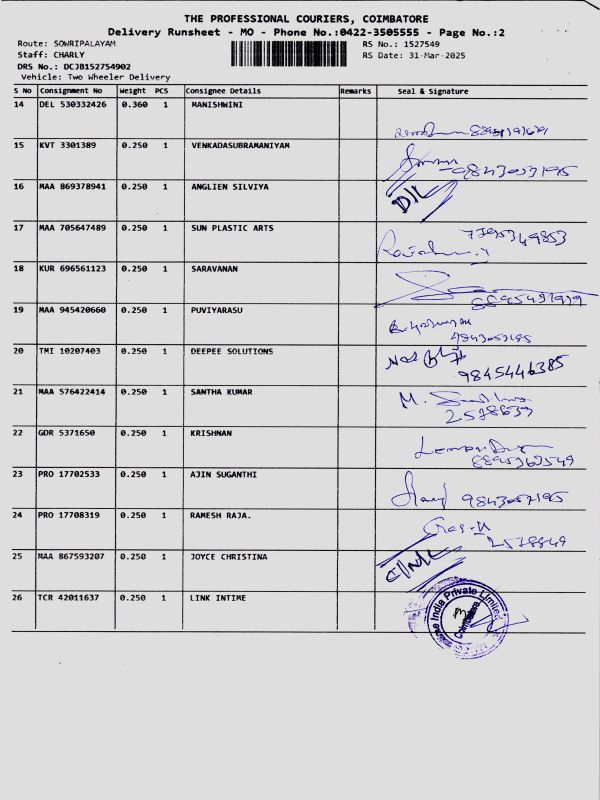 THE PROFESSIONAL COURIERS, COIMBATORE
Delivery Runsheet - MO - Phone No.:0422-3505555 - Page No.:2
Route: SOWRIPALAYAM RS No.: 1527549
Staff: CHARLY RS Date: 31-Mar-2025
DRS No.: DCJB152754902
Vehicle: Two Wheeler Delivery
S No Consignment No Weight PCS Consignee Details Remarks Seal & Signature
14 DEL 530332426 0.360 1 MANISHWINI
15 KVT 3301389 0.250 1 VENKADASUBRAMANIYAM
9843053195
16 MAA 869378941 0.250 1 ANGLIEN SILVIYA
D/L
17 MAA 705647489 0.250 1 SUN PLASTIC ARTS
18 KUR 696561123 0.250 1 SARAVANAN
19 MAA 945420660 0.250 1 PUVIYARASU
20 TMI 10207403 0.250 1 DEEPEE SOLUTIONS
9845446385
21 MAA 576422414 0.250 1 SANTHA KUMAR
M.
2578639
22 GDR 5371650 0.250 1 KRISHNAN
8895362549
23 PRO 17702533 0.250 1 AJIN SUGANTHI
9843057195
24 PRO 17708319 0.250 1 RAMESH RAJA.
2578849
25 MAA 867593207 0.250 1 JOYCE CHRISTINA
26 TCR 42011637 0.250 1 LINK INTIME
India Private Limited
Coimbatore